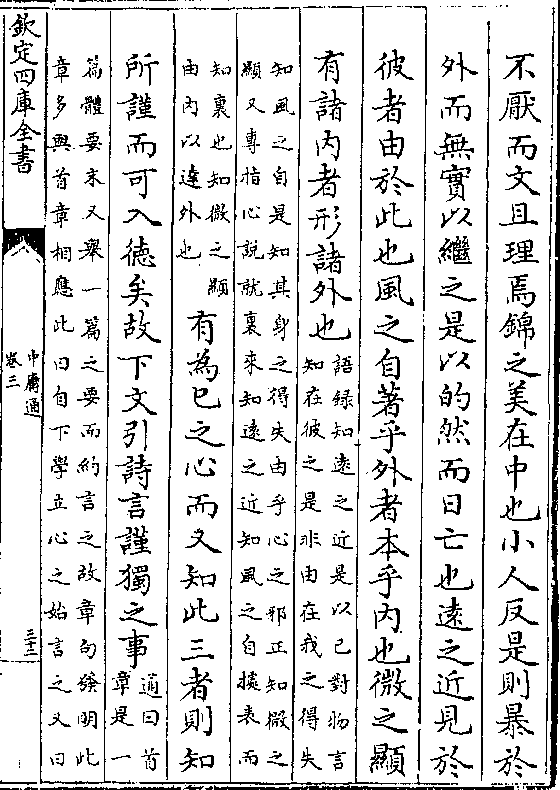 不厭而文且理焉錦之美在中也小人反是則暴於
外而無實以繼之是以的然而日亡也遠之近見於
彼者由於此也風之自著乎外者本乎内也微之顯
有諸内者形諸外也
語録知逺之近是以己對物言
知在彼之是非由在我之得失
知風之自是知其身之得失由乎心之邪正知微之
顯又專指心說就裏來知逺之近知風之自㨿表而
知裏也知微之顯
由内以達外也
有為已之心而又知此三者則知
所謹而可入德矣故下文引詩言謹獨之事
通曰首
章是一
篇體要末又舉一篇之要而約言之故章句發明此
章多與首章相應此曰自下學立心之始言之又曰
欽定四庫全書
中庸通
卷三
三十二